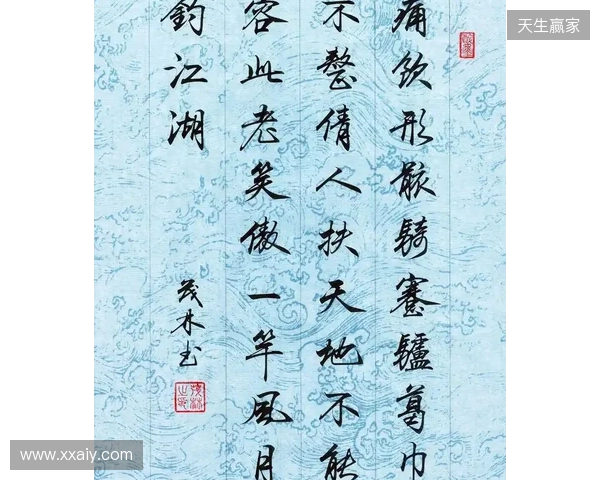 天生赢家
痛飲形骸騎蹇驢葛巾
不整倩人扶天地不能
容此老笑傲一竿風月
釣江湖
茂林书
www.xxaiy.com